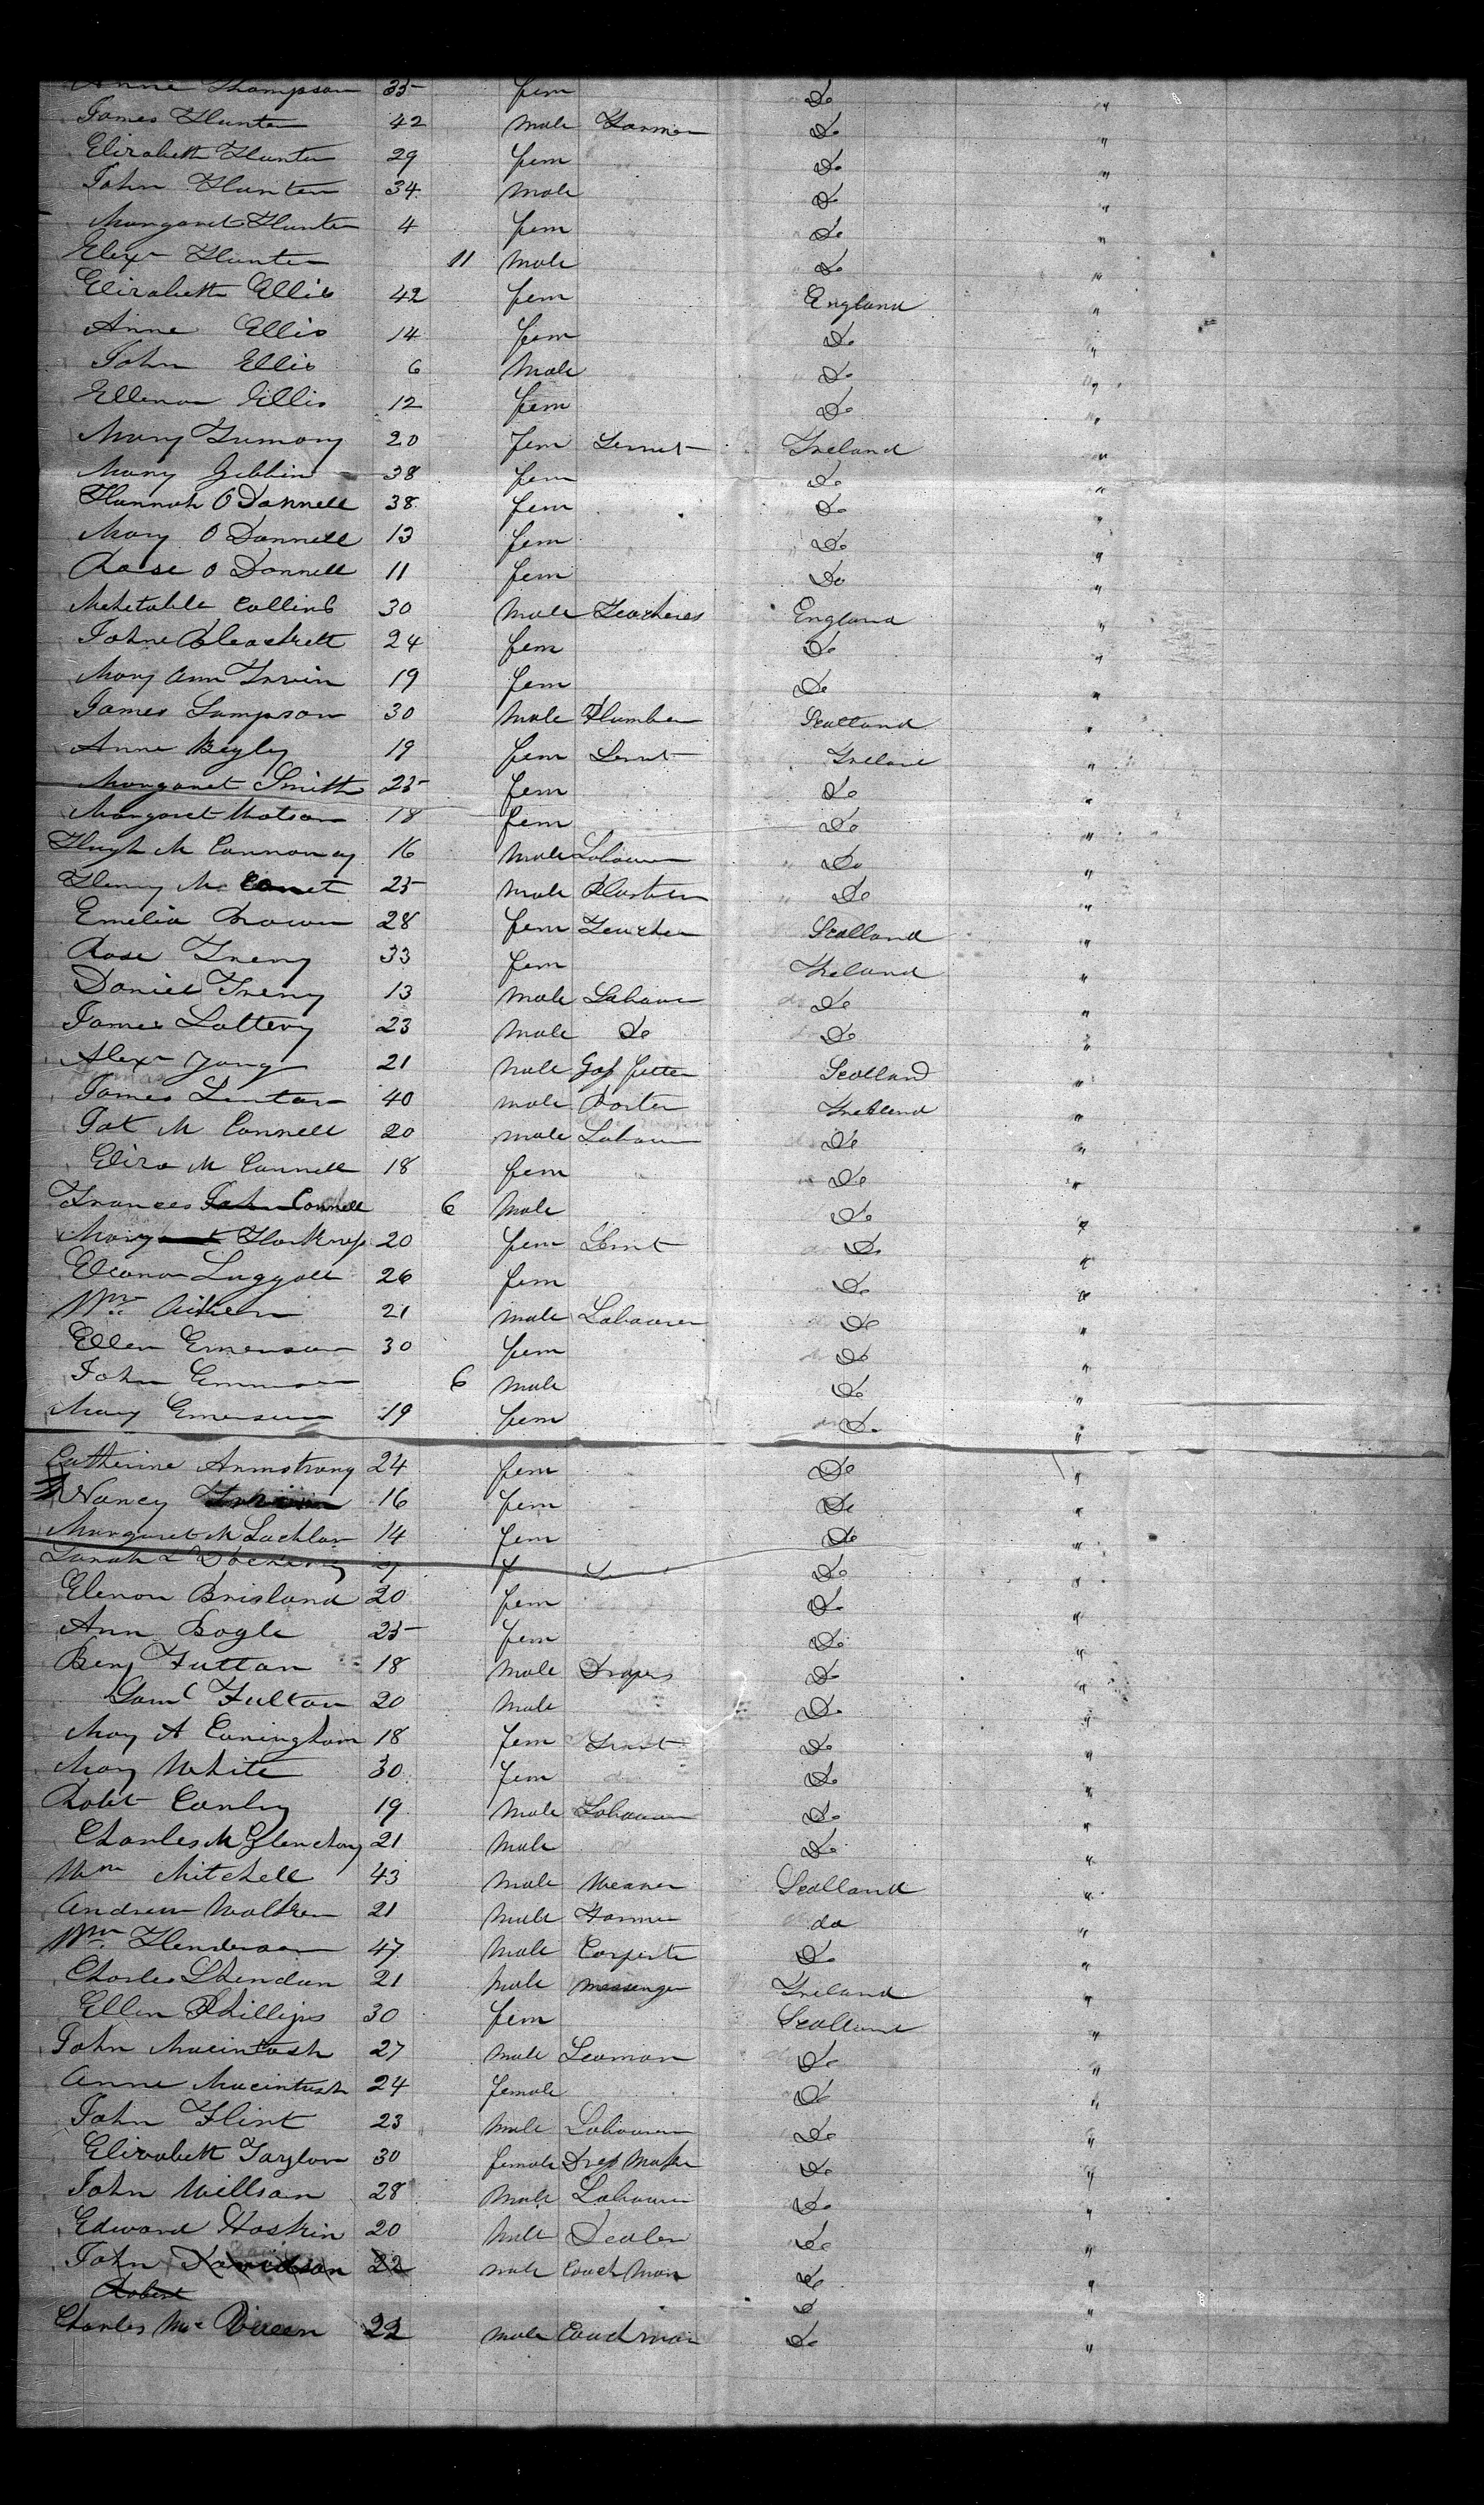 Anne Thompson 35 fem Do "
James Hunter 42 male Farmer Do "
Elizabeth Hunter 29 fem Do "
John Hunter 34 male Do "
Margaret Hunter 4 fem Do "
Elexr Hunter 11 male Do "
Elizabeth Ellis 42 fem England "
Anne Ellis 14 fem Do "
John Ellis 6 male Do "
Ellenor Ellis 12 fem Do "
Mary 20 fem Servt Ireland "
Mary Gibbin 38 fem Do "
Hannah O Donnell 38 fem Do "
Mary O Donnell 13 fem Do "
Rose O Donnell 11 fem Do "
Mehetable Collins 30 male Teacheres England "
24 fem Do "
Mary Ann Irvin 19 fem Do "
James Sampson 30 male Plumber Scotland "
Anne Begley 19 fem Servt Ireland "
Margaret Smith 25 fem Do "
Margaret Watson 18 fem Do "
Hugh M Connonay 16 male Labourer Do "
Henry Mc 25 male Do "
Emelia Brown 28 fem Teacher Scotland "
Rose Treny 33 fem Ireland "
Daniel Treny 13 male Labourer Do "
James Lattery 23 male Do Do "
Alexr Yong 21 male Gas fitter Scotland "
James Linton 40 male Porter Ireland "
Pat M Connell 20 male Labourer Do "
Eliza M Connell 18 fem Do "
Frances John Connell 6 male Do "
Mary 20 fem Servt Do "
Eleanor 26 fem Do "
Wm Aitken 21 male Labourer Do "
Ellen Emerson 30 fem Do "
John Emerson 6 male Do "
Mary Emerson 19 fem Do "
Catherine Armstrong 24 fem Do "
Nancy 16 fem Do "
Margaret M Lachlan 14 fem Do "
Sarah Do "
Elenor Brisland 20 fem Do "
Ann Bogle 25 fem Do "
Benj Fulton 18 male Drapers Do "
Saml Fulton 20 male Do "
Mary A Cuningham 18 fem Servt Do "
Mary White 30 fem do Do "
Robt Conley 19 male Labourer Do "
Charles M Glenchay 21 male Do "
Wm Mitchell 43 male Weaver Scotland "
Andrew Walker 21 male Farmer do "
Wm Henderson 47 male Carpenter Do "
Charles Shendan 21 male messenger Ireland "
Ellen Phillips 30 fem Scotland "
John Macintosh 27 male Seaman Do "
Anne Macintosh 24 female Do "
John Flint 23 male Labourer Do "
Elizabeth Taylor 30 female Dress Maker Do "
John Willson 28 male Labourer Do "
Edward Hoskin 20 male Dealer Do "
John Davidson 22 male Coach Man Do "
Robert Do "
Charles Mc 22 male Coachman Do "